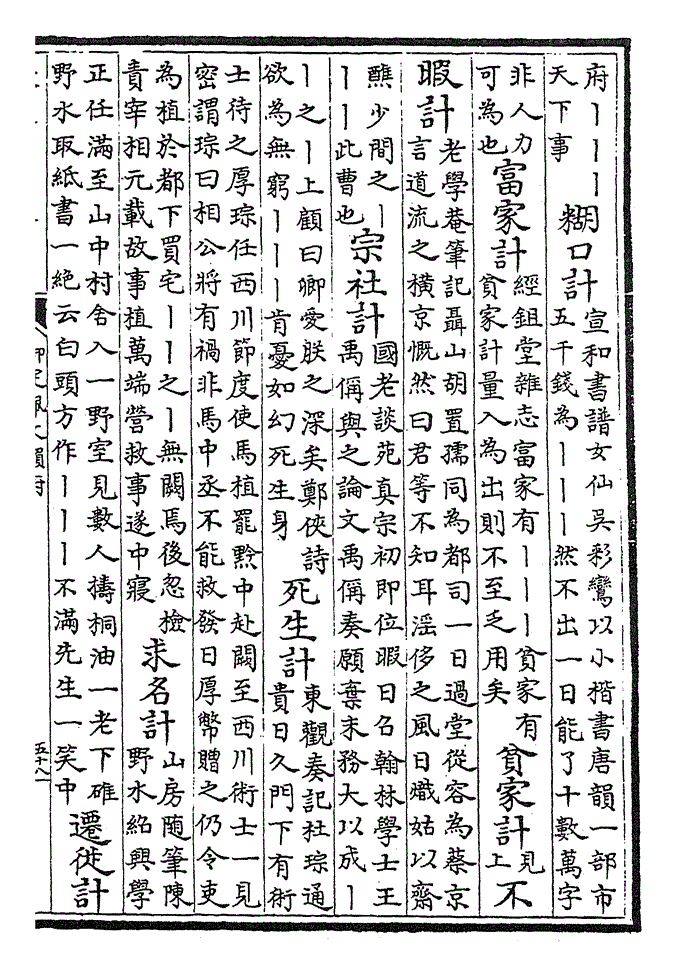 府丨丨丨天下事糊口計宣和書譜女仙吳彩鸞以小楷書唐韻一部市五千錢為丨丨丨然不出一日能了十數萬字
非人力可為也富家計經鉏堂雜志富家有丨丨丨貧家有貧家計量入為出則不至乏用矣貧家計見上不
暇計老學菴筆記聶山胡置孺同為都司一日過堂從容為蔡京言道流之橫京慨然曰君等不知耳淫侈之風日熾姑以齋
醮少間之丨丨丨此曹也宗社計國老談苑真宗初即位暇日名翰林學士王禹偁與之論文禹偁奏願棄末務大以成丨
丨之丨上顧曰卿愛朕之深矣鄭俠詩欲為無窮丨丨丨肯憂如幻死生身死生計東觀奏記杜琮通貴日久門下有術
士待之厚琮任西川節度使馬植罷黔中赴闕至西川術士一見密謂琮曰相公將有禍非馬中丞不能救發日厚幣贈之仍令吏
為植於都下買宅丨丨之丨無闕焉後忽檢責宰相元載故事植萬端營救事遂中寢求名計山房隨筆陳野水紹興學
正任滿至山中村舍入一野室見數人擣桐油一老下碓野水取紙書一絕云白頭方作丨丨丨不滿先生一笑中遷徙計